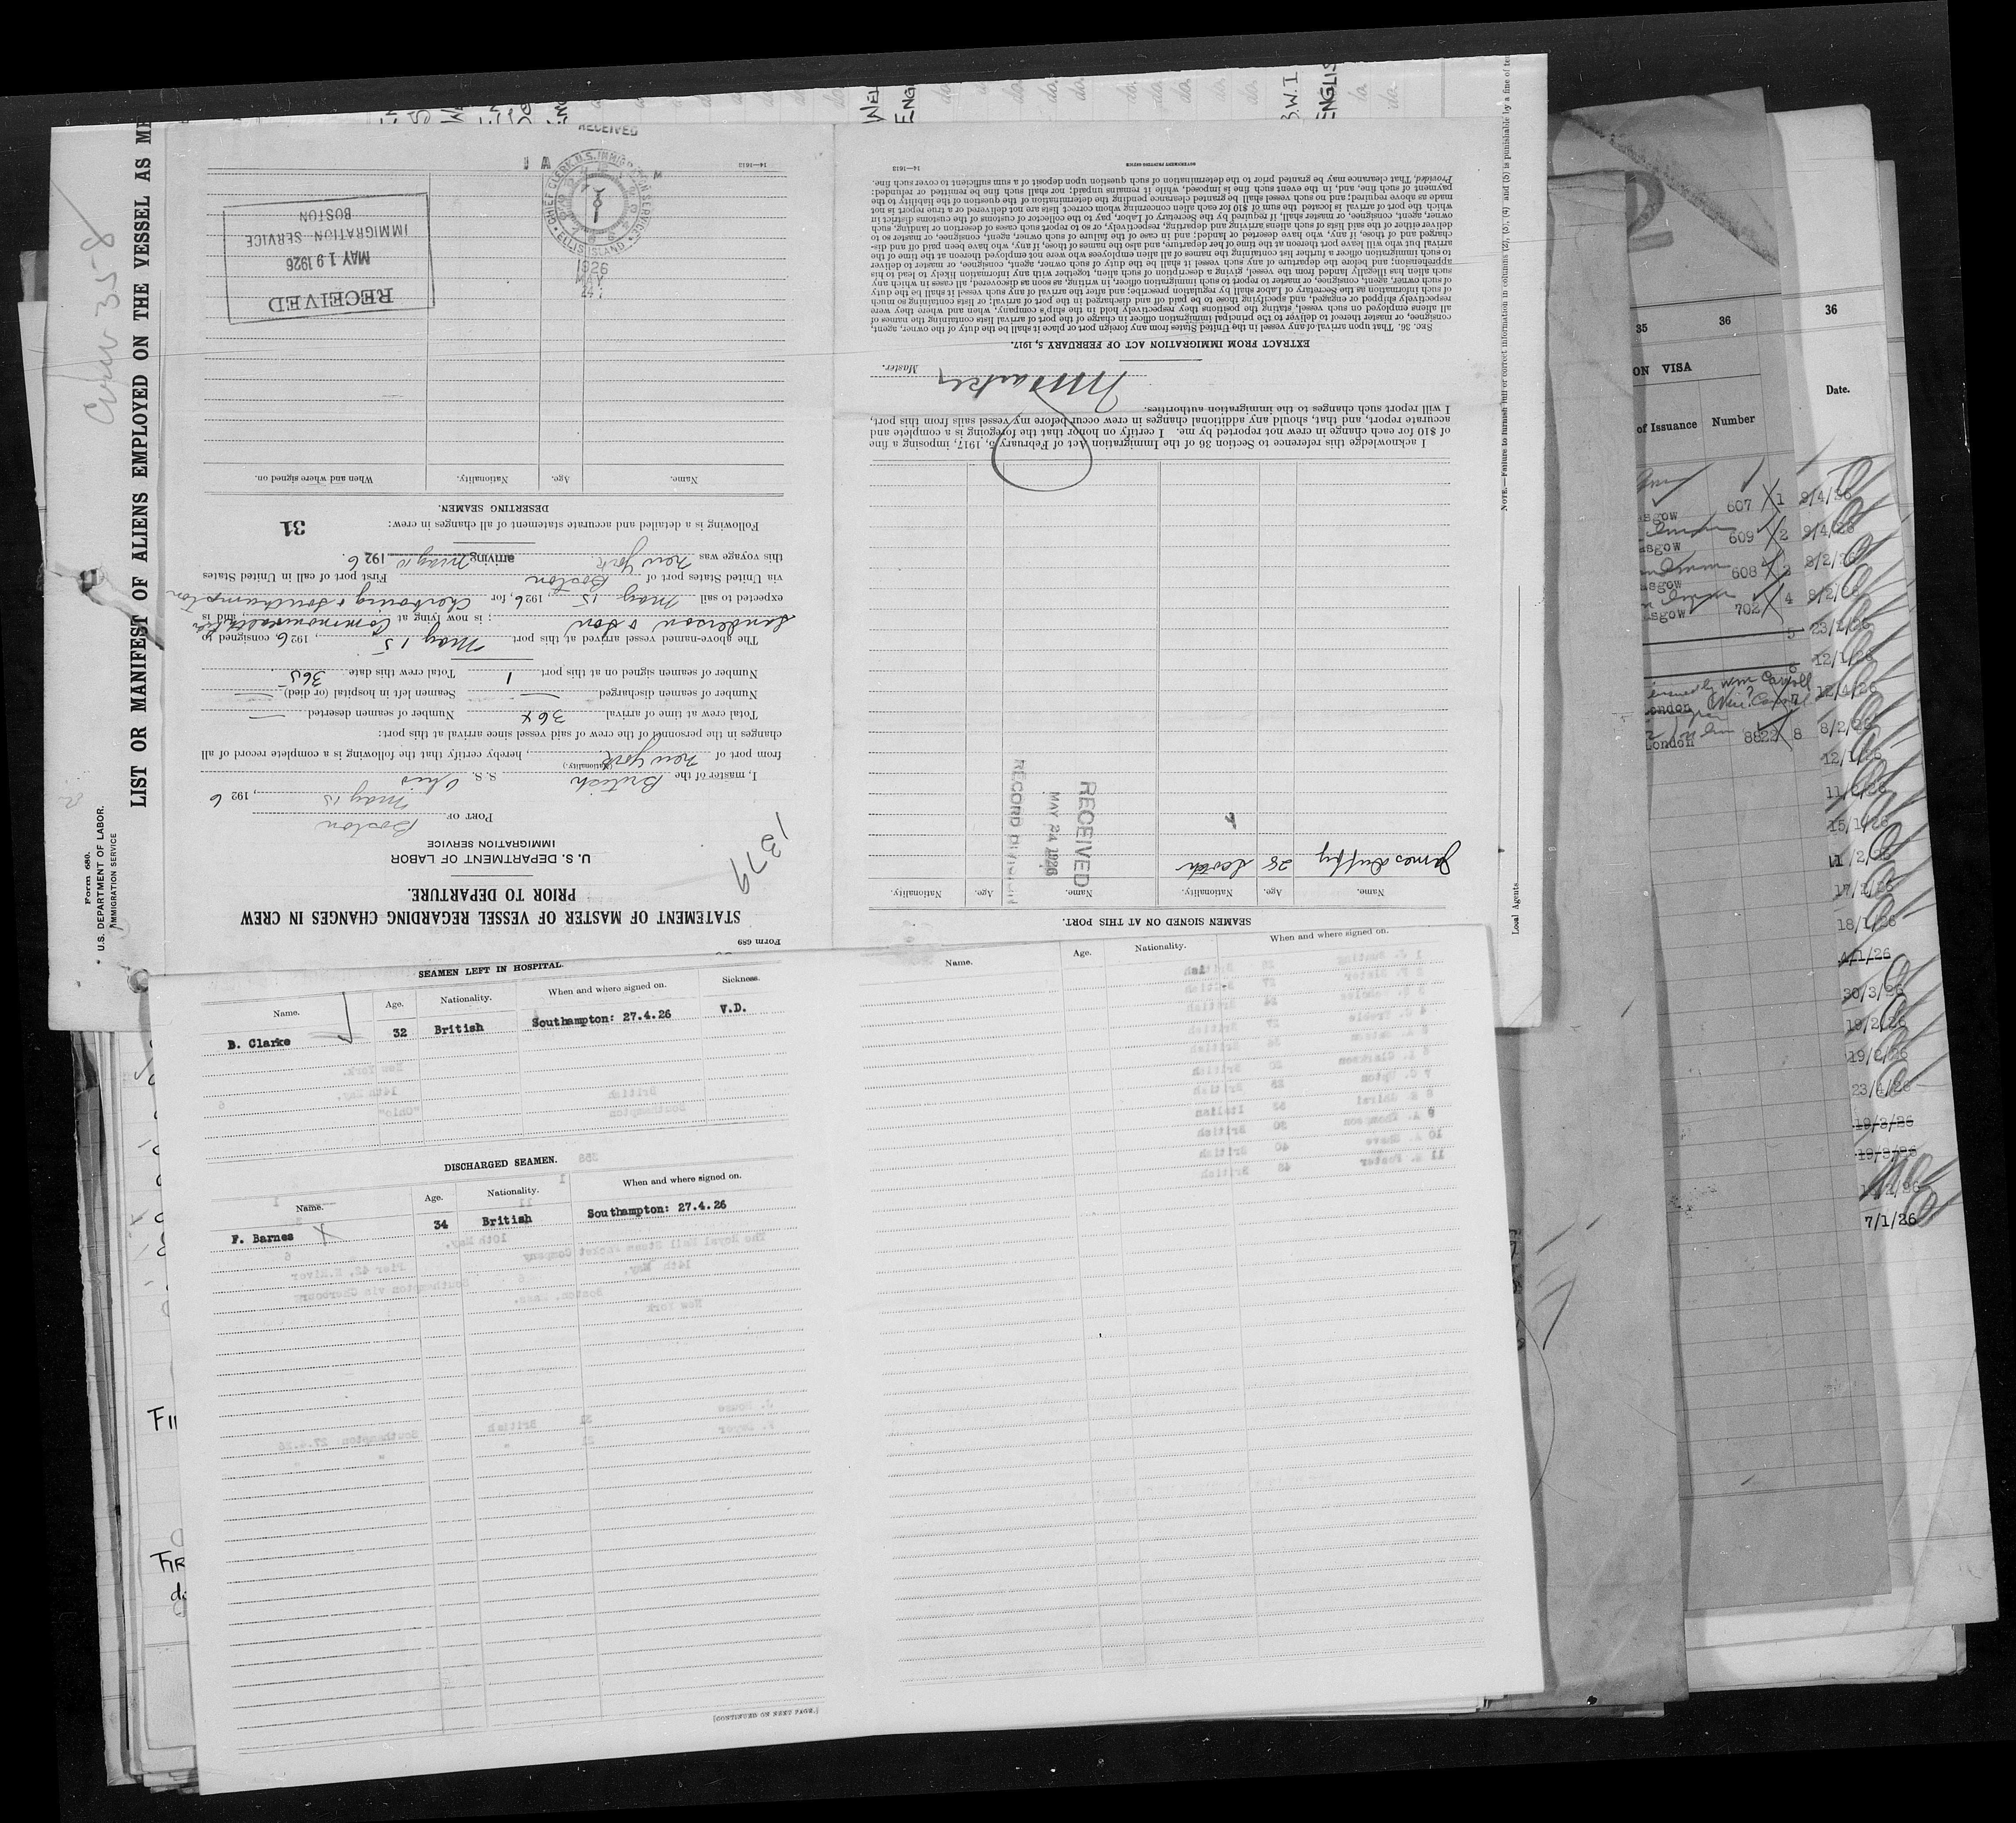 Form 680.
U.S. DEPARTMENT OF LABOR
IMMIGRATION SERVICE
LIST OR MANIFEST OF ALIENS EMPLOYED ON THE VESSEL AS ME
Crew 358
Form 689
STATEMENT OF MASTER OF VESSEL REGARDING CHANGES IN CREW
PRIOR TO DEPARTURE.
1379
U. S. DEPARTMENT OF LABOR
IMMIGRATION SERVICE
PORT OF Boston
May 15, 1926
I, master of the British S. S. Ohio
(Nationality.)
from port of New York, hereby certify that the following is a complete record of all
changes in the personnel of the crew of said vessel since arrival at this port:
Total crew at time of arrival 364 Number of seamen deserted —
Number of seamen discharged — Seamen left in hospital (or died) —
Number of seamen signed on at this port 1 Total crew this date 365.
The above-named vessel arrived at this port May 15, 1926, consigned to
Sanderson & Son; is now lying at Commonwealth Pier, and is
expected to sail May 15, 1926, for Cherbourg & Southampton
via United States port of Boston First port of call in United States
this voyage was New York arriving May 10 1926.
Following is a detailed and accurate statement of all changes in crew:
31
DESERTING SEAMEN.
Name. Age. Nationality. When and where signed on.
RECEIVED
MAY 19 1926
IMMIGRATION SERVICE
BOSTON
RECEIVED
CHIEF CLERK, U.S. IMMIGRATION SERVICE
ELLIS ISLAND
1926
MAY
24
14—1613
SEAMEN SIGNED ON AT THIS PORT.
Name. Age. Nationality. Name. Age. Nationality.
James Duffy 28 Scotch
RECEIVED
MAY 24 1926
RECORD DIVISION
I acknowledge this reference to Section 36 of the Immigration Act of February 5, 1917, imposing a fine
of $10 for each change in crew not reported by me. I certify on honor that the foregoing is a complete and
accurate report, and that, should any additional changes in crew occur before my vessel sails from this port,
I will report such changes to the immigration authorities.
Master.
EXTRACT FROM IMMIGRATION ACT OF FEBRUARY 5, 1917.
SEC. 36. That upon arrival of any vessel in the United States from any foreign port or place it shall be the duty of the owner, agent,
consignee, or master thereof to deliver to the principal immigration officer in charge of the port of arrival lists containing the names of
all aliens employed on such vessel, stating the positions they respectively hold in the ship's company, when and where they were
respectively shipped or engaged, and specifying those to be paid off and discharged in the port of arrival; or lists containing so much
of such information as the Secretary of Labor shall by regulation prescribe; and after the arrival of any such vessel it shall be the duty
of such owner, agent, consignee, or master to report to such immigration officer, in writing, as soon as discovered, all cases in which any
such alien has illegally landed from the vessel, giving a description of such alien, together with any information likely to lead to his
apprehension; and before the departure of any such vessel it shall be the duty of such owner, agent, consignee, or master to deliver
to such immigration officer a further list containing the names of all alien employees who were not employed thereon at the time of the
arrival but who will leave port thereon at the time of her departure, and also the names of those, if any, who have been paid off and dis-
charged and of those, if any, who have deserted or landed; and in case of the failure of such owner, agent, consignee, or master so to
deliver either of the said lists of such aliens arriving and departing, respectively, or so to report such cases of desertion or landing, such
owner, agent, consignee, or master, shall, if required by the Secretary of Labor, pay to the collector of customs of the customs district in
which the port of arrival is located the sum of $10 for each alien concerning whom correct lists are not delivered or a true report is not
made as above required; and no such vessel shall be granted clearance pending the determination of the question of the liability to the
payment of such fine, and, in the event such fine is imposed, while it remains unpaid; nor shall such fine be remitted or refunded:
Provided, That clearance may be granted prior to the determination of such question upon deposit of a sum sufficient to cover such fine.
GOVERNMENT PRINTING OFFICE
14—1613
Local Agents
SEAMEN LEFT IN HOSPITAL.
Name. Age. Nationality. When and where signed on. Sickness.
B. Clarke 32 British Southampton: 27.4.26 V.D.
DISCHARGED SEAMEN.
Name. Age. Nationality. When and where signed on.
F. Barnes 34 British Southampton: 27.4.26
Name. Age. Nationality. When and where signed on.
WEL
ENG
B.W.I
ENGLIS
2
35 36
ON VISA
of Issuance Number
sgow 607 1
sgow 609 2
sgow 608 3
sgow 702 4
5
6
London 7
London 8822 8
36
Date.
9/4/26
9/4/26
8/2/26
8/2/26
23/2/26
12/1/26
12/4/26
8/2/26
12/1/26
11/2/26
15/1/26
11/2/26
17/2/26
18/1/26
4/1/26
30/3/26
19/2/26
19/2/26
23/4/26
19/3/26
19/3/26
7/1/26
FIR